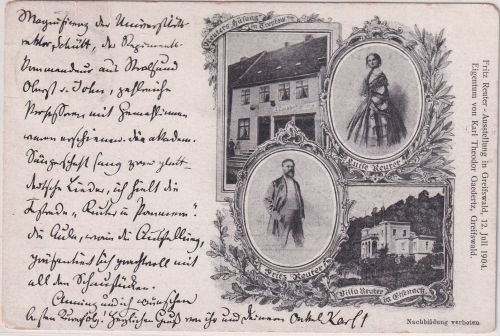 Magnifizenz der Universitäts-
rektor Schütt, der Regiments-
kommandeur aus Stralsund
Oberst v. John, zahlreiche
Professoren mit Gemahlinnen
waren erschienen. Die akadem.
Sängerschaft sang zwei platt-
deutsche Lieder, ich hielt die
Festrede "Reuter in Pommern"
die Aula, worin die Ausstellung,
präsentiert sich prachtvoll mit
all den Schaustücken.
und ich wünschen
besten Kurerfolg! Herzlichen Gruß von ihr und Deinem Onkel Karl
Reuters Häsung
in Treptow
Luise Reuter
Fritz Reuter
Villa Reuter
in Eisenach
Fritz Reuter-Ausstellung in Greifswald, 12. Juli 1904.
Eigentum von Karl Theodor Gaedertz, Greifswald.
Nachbildung verboten